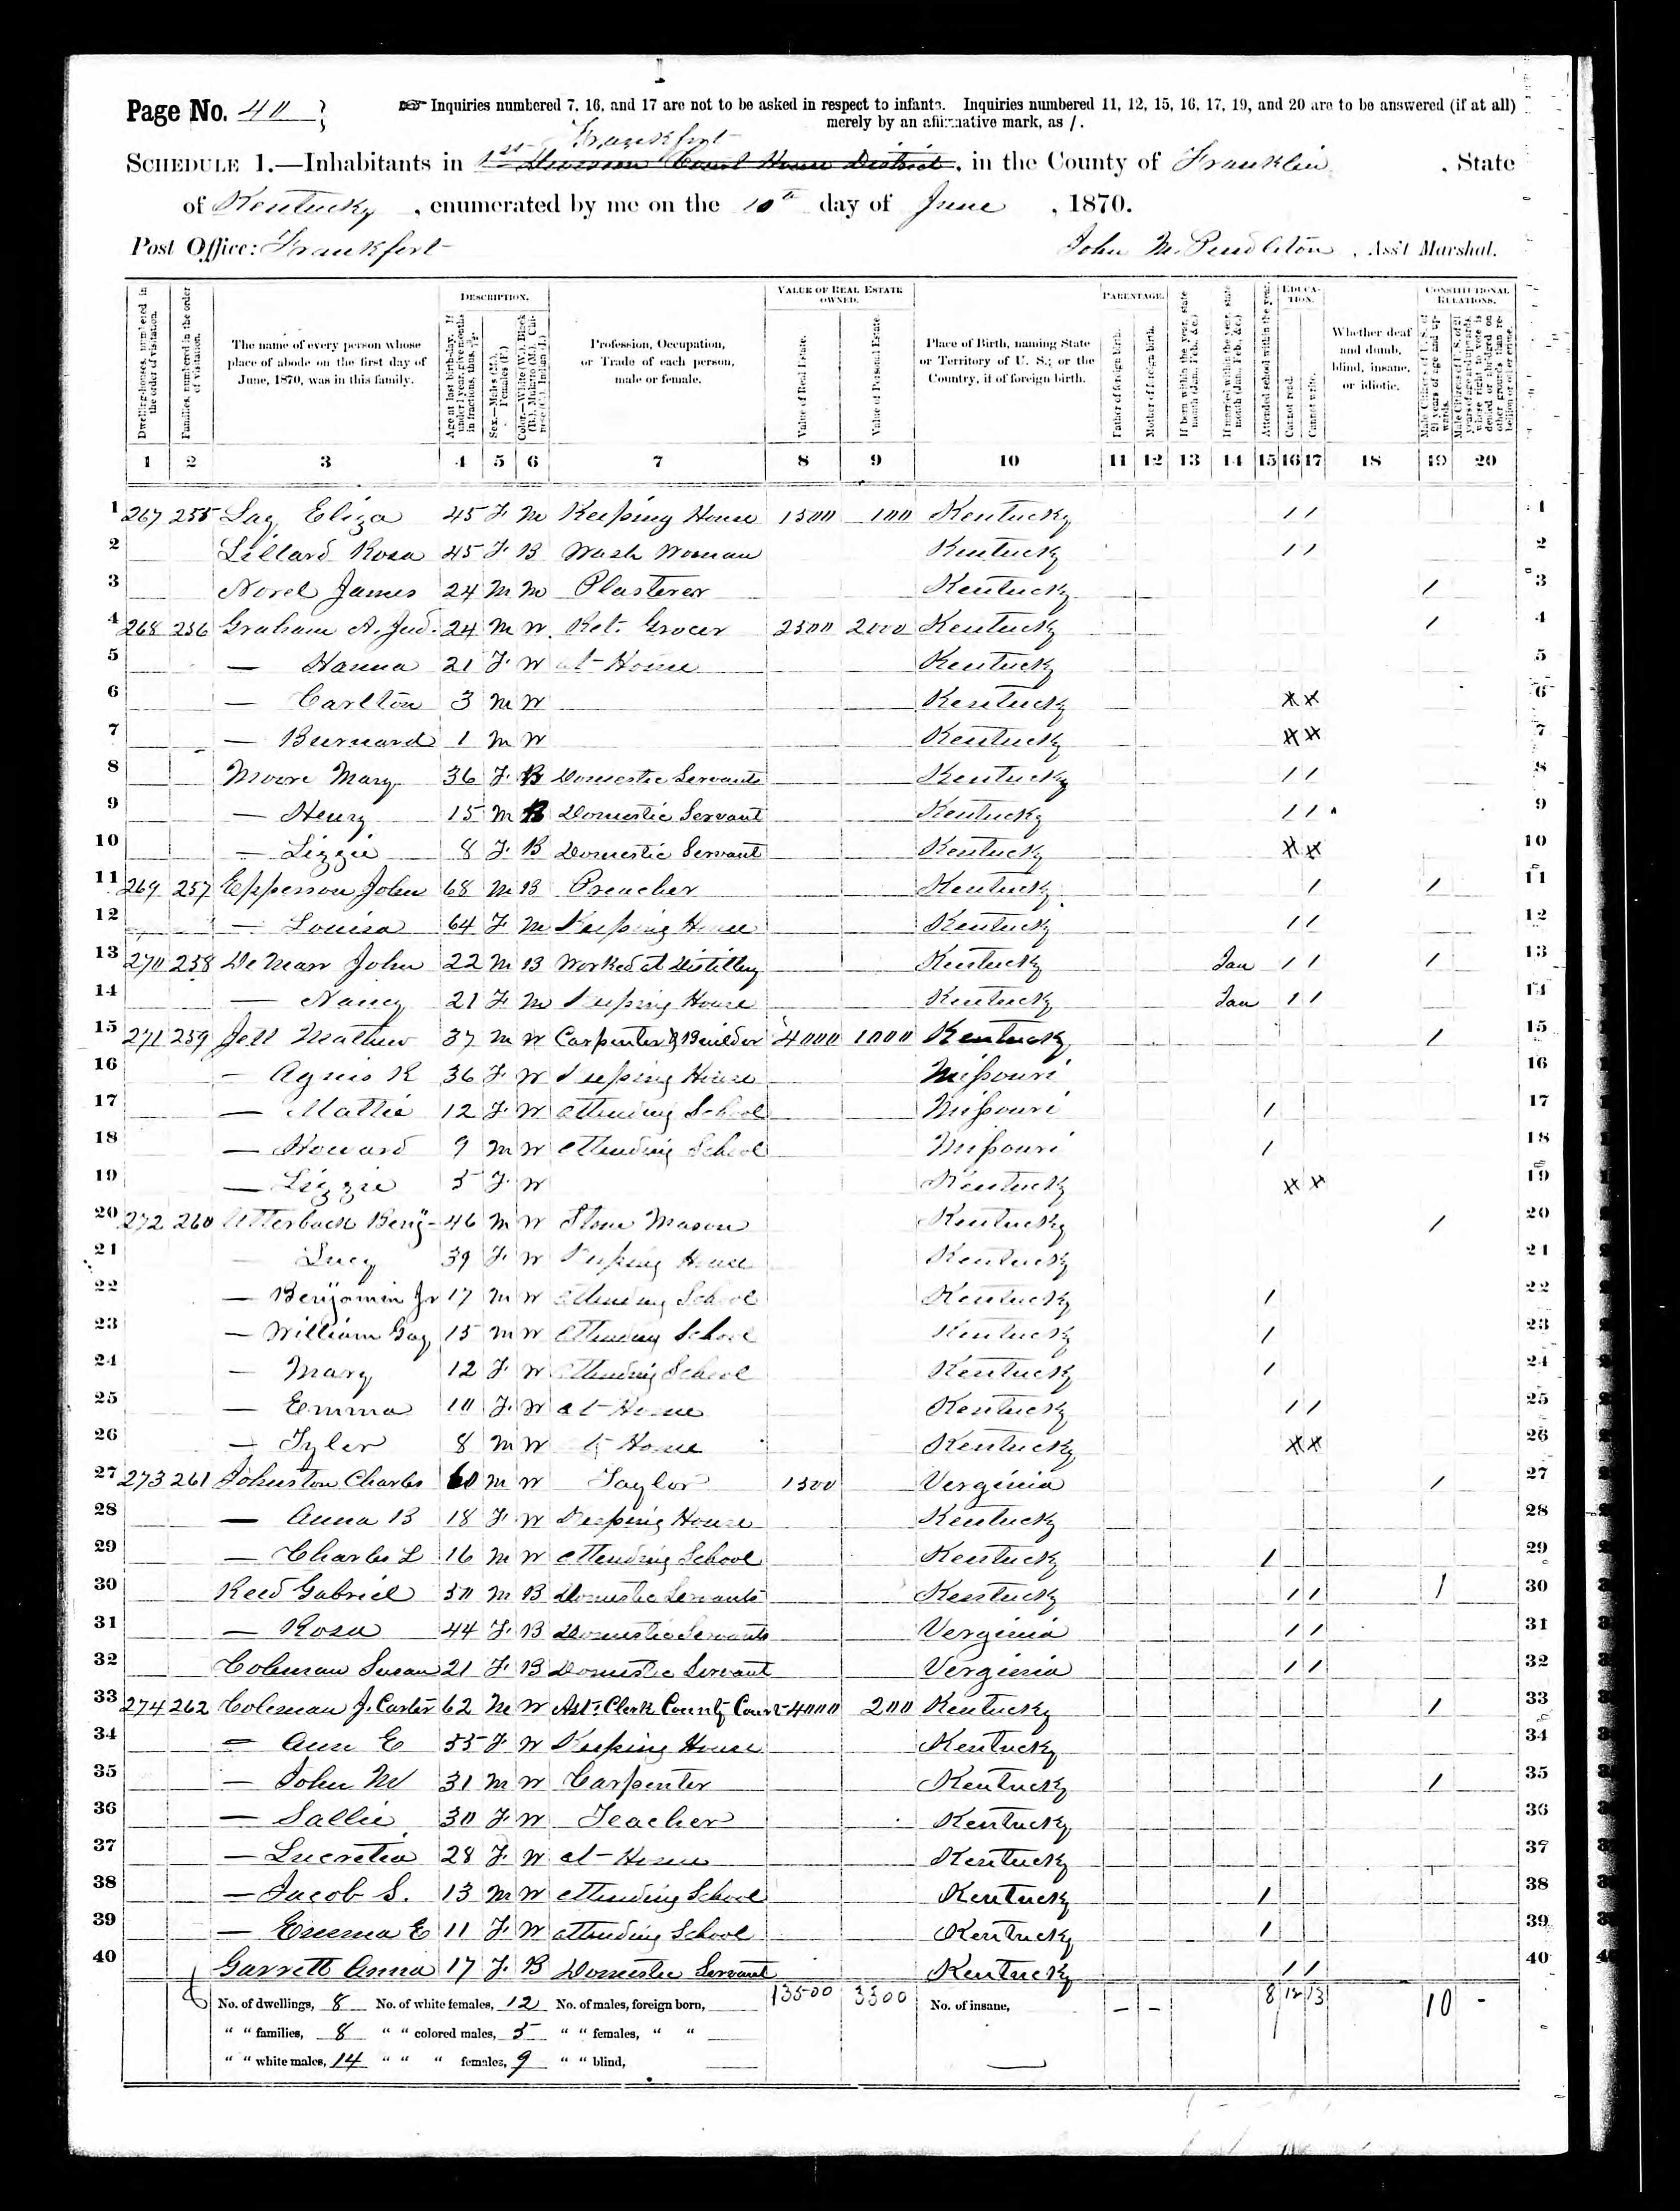 Page No. 40
Inquiries numbered 7, 16, and 17 are not to be asked in respect to infants. Inquiries numbered 11, 12, 15, 16, 17, 19, and 20 are to be answered (if at all)
merely by an affirmative mark, as /.
Frankfort
SCHEDULE 1.—Inhabitants in 1st Division Court House District, in the County of Franklin, State
of Kentucky, enumerated by me on the 10th day of June, 1870.
Post Office: Frankfort John M. Pendleton, Ass't Marshal.
Dwelling-houses, numbered in the order of visitation.
Families, numbered in the order of visitation.
The name of every person whose place of abode on the first day of June, 1870, was in this family.
DESCRIPTION.
Age at last birth-day. If under 1 year, give months in fractions, thus,
Sex.—Males (M.), Females (F.)
Color.—White (W.), Black (B.), Mulatto (M.), Chinese (C.), Indian (I.)
Profession, Occupation, or Trade of each person, male or female.
VALUE OF REAL ESTATE OWNED.
Value of Real Estate.
Value of Personal Estate.
Place of Birth, naming State or Territory of U. S.; or the Country, if of foreign birth.
PARENTAGE.
Father of foreign birth.
Mother of foreign birth.
If born within the year, state month (Jan., Feb., &c.)
If married within the year, state month (Jan., Feb., &c.)
Attended school within the year.
EDUCATION.
Cannot read.
Cannot write.
Whether deaf and dumb, blind, insane, or idiotic.
CONSTITUTIONAL RELATIONS.
Male Citizens of U. S. of 21 years of age and upwards.
Male Citizens of U. S. of 21 years of age and upwards, whose right to vote is denied or abridged on other grounds than rebellion or other crime.
1 2 3 4 5 6 7 8 9 10 11 12 13 14 15 16 17 18 19 20
1 267 255 Eliza 45 F M Keeping House 1500 100 Kentucky / / 1
2 Lillard Rosa 45 F B Wash Woman Kentucky / / 2
3 Norel James 24 M M Plasterer Kentucky / 3
4 268 256 Graham A. Jud. 24 M W Ret. Grocer 2500 2000 Kentucky / 4
5 — Hanna 21 F W at Home Kentucky 5
6 — Carlton 3 M W Kentucky 6
7 — Burnard 1 M W Kentucky 7
8 Moore Mary 36 F B Domestic Servants Kentucky / / 8
9 — Henry 15 M B Domestic Servant Kentucky / / 9
10 — Lizzie 8 F B Domestic Servant Kentucky 10
11 269 257 Epperson John 68 M B Preacher Kentucky / / 11
12 — Louisa 64 F M Keeping House Kentucky / / 12
13 270 258 DeMarr John 22 M B Worked at Distillery Kentucky Jan / / / 13
14 — Nancy 21 F M Keeping House Kentucky Jan / / 14
15 271 259 Jett Mathew 37 M W Carpenter & Builder 4000 1000 Kentucky / 15
16 — Agnis R 36 F W Keeping House Missouri 16
17 — Mattie 12 F W attending School Missouri / 17
18 — Howard 9 M W attending School Missouri / 18
19 — Lizzie 5 F W Kentucky 19
20 272 260 Utterback Benj- 46 M W Stone Mason Kentucky / 20
21 — Lucy 39 F W Keeping House Kentucky 21
22 — Benjamin Jr 17 M W attending School Kentucky / 22
23 — William Gay 15 M W attending School Kentucky / 23
24 — Mary 12 F W attending School Kentucky / 24
25 — Emma 10 F W at Home Kentucky / / 25
26 — Tyler 8 M W at Home Kentucky 26
27 273 261 Johnston Charles 60 M W Taylor 1500 Verginia / 27
28 — Anna B 18 F W Keeping House Kentucky 28
29 — Charles L 16 M W attending School Kentucky / 29
30 Reed Gabriel 50 M B Domestic Servants Kentucky / / / 30
31 — Rosa 44 F B Domestic Servants Verginia / / 31
32 Coleman Susan 21 F B Domestic Servant Verginia / / 32
33 274 262 Coleman J. Carter 62 M W Ast. Clerk County Court 4000 200 Kentucky / 33
34 — Ann E 55 F W Keeping House Kentucky 34
35 — John M 31 M W Carpenter Kentucky / 35
36 — Sallie 30 F W Teacher Kentucky 36
37 — Lucretia 28 F W at Home Kentucky 37
38 — Jacob S. 13 M W attending School Kentucky / 38
39 — Emma E 11 F W attending School Kentucky / 39
40 Garrett Anna 17 F B Domestic Servant Kentucky / / 40
No. of dwellings, 8 No. of white females, 12 No. of males, foreign born, 13500 3300 No. of insane, – – 8 12 13 10 -
" " families, 8 " " colored males, 5 " " females, " "
" " white males, 14 " " " females, 9 " " blind,